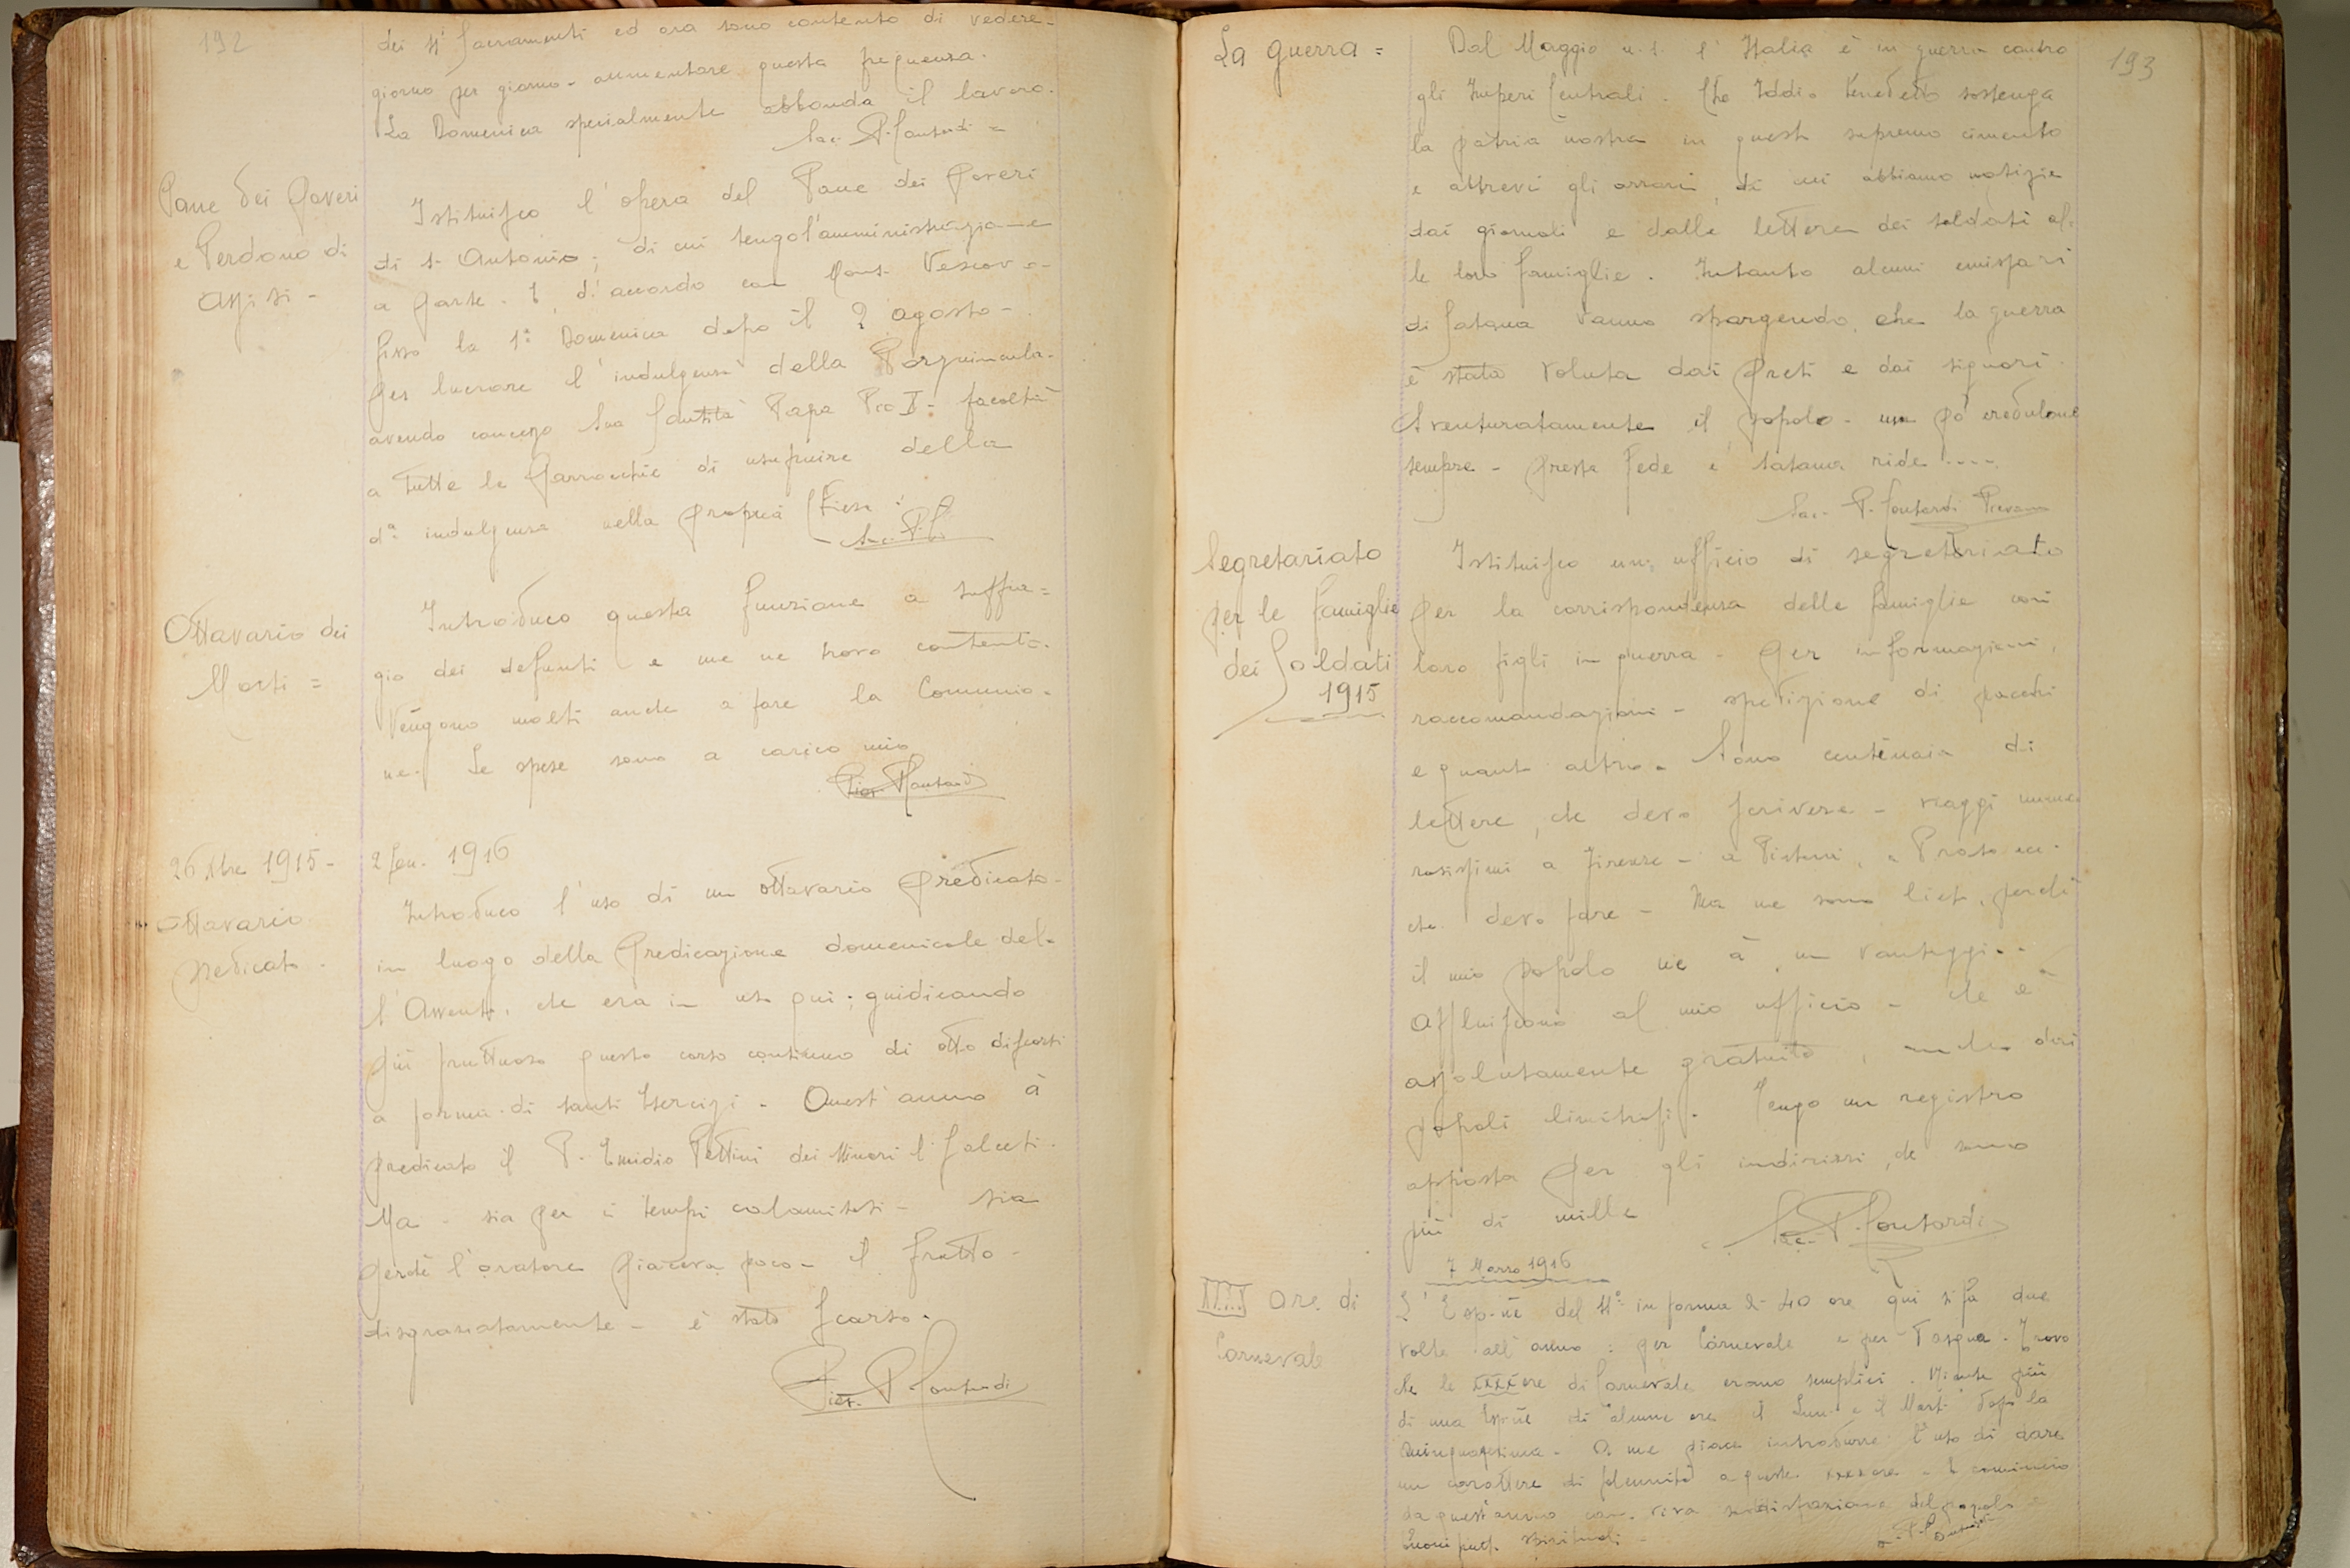 192
dei SS. Sacramenti ed ora sono contento di vedere-
giorno per giorno - aumentare questa frequenza.
La Domenica specialmente abbonda il lavoro.
Sac. P. Contardi =
Pane dei Poveri
e Perdono di
Assisi -
Istituisco l'opera del Pane dei Poveri
di S. Antonio; di cui tengo l'amministrazione
a parte. E, d'accordo con Mons. Vescovo-
fisso la 1ª Domenica dopo il 2 agosto-
per lucrare l'indulgenza della Porziuncola-
avendo concesso Sua Santità Papa Pio X- facoltà
a tutte le Parrocchie di usufruire della
dª indulgenza nella propria Chiesa:
Sac. P. C.
Ottavario dei
Morti =
Introduco questa funzione a suffra=
gio dei defunti e me ne trovo contento.
Vengono molti anche a fare la Comunio-
ne. Le spese sono a carico mio
Pier. Contardi
26 Xbre 1915-
2 Gen. 1916
Ottavario
predicato.
Introduco l'uso di un ottavario predicato-
in luogo della predicazione domenicale del-
l'Avvento, che era in uso qui; giudicando
più fruttuoso questo corso continuo di otto discorsi
a forma di santi Esercizi. Quest'anno à
predicato il P. Emidio Pettini dei Minori
Ma - sia per i tempi calamitosi - sia
perchè l'oratore piaceva poco - il frutto-
disgraziatamente - è stato scarso.
Pier. P. Contardi
193
La guerra =
Dal Maggio u.s. l'Italia è in guerra contro
gli Imperi Centrali. Che Iddio benedetto sostenga
la patria nostra in questo supremo cimento
e abbrevi gli orrori, di cui abbiamo notizie
dai giornali e dalle lettere dei soldati al-
le loro famiglie. Intanto alcuni emissari
di Satana vanno spargendo, che la guerra
è stata voluta dai preti e dai signori.
Sventuratamente il popolo - un pò credulone
sempre - presta fede e Satana ride ....
Sac. P. Contardi Pievano
Segretariato
per le famiglie
dei Soldati
1915
Istituisco un ufficio di segretariato
per la corrispondenza delle famiglie coi
loro figli in guerra - per informazioni,
raccomandazioni - spedizione di pacchi
e quant'altro. Sono centinaia di
lettere, che devo scrivere - viaggi nume
rosissimi a Firenze - a Pistoia, a Prato ecc.
che devo fare - Ma ne sono lieto, perchè
il mio popolo ne à un vantaggio.
Affluiscono al mio ufficio - che è
assolutamente gratuito, anche dai
popoli limitrofi. Tengo un registro
apposta per gli indirizzi, che sono
più di mille
Sac. P. Contardi
7 Marzo 1916
XXXX ore di
Carnevale
L'Esp.ne del SS.º in forma di 40 ore qui si fà due
volte all'anno: per Carnevale e per Pasqua. Trovo
che le XXXX ore di Carnevale erano semplici. Niente più
di una Esp.ne di alcune ore il Lun. e il Mart. dopo la
Quinquagesima. A me piace introdurre l'uso di dare
un carattere di solennità a queste XXXX ore - E comincio
da quest'anno con viva soddisfazione del popolo e
buoni frutti spirituali.
P. Contardi